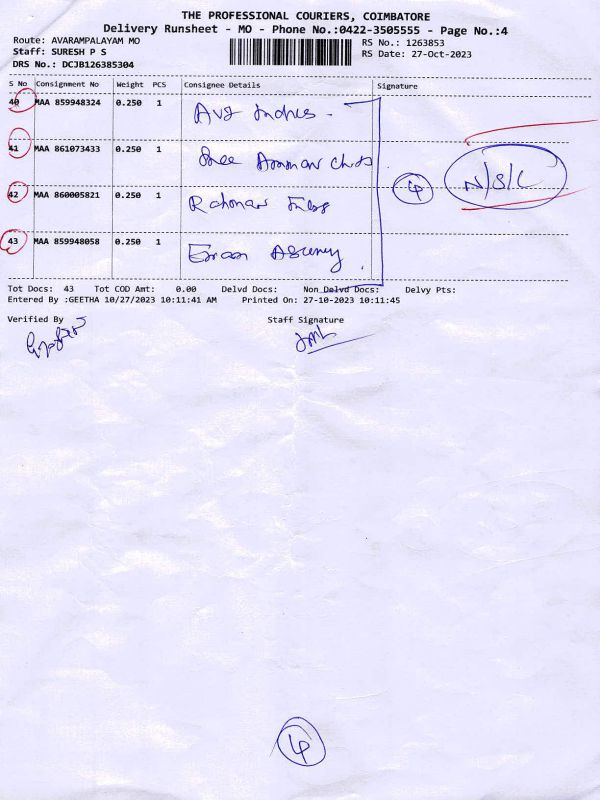 THE PROFESSIONAL COURIERS, COIMBATORE
Delivery Runsheet - MO - Phone No.:0422-3505555 - Page No.:4
Route: AVARAMPALAYAM MO
Staff: SURESH P S
DRS No.: DCJB126385304
RS No.: 1263853
RS Date: 27-Oct-2023
S No Consignment No Weight PCS Consignee Details Signature
40 MAA 859948324 0.250 1
41 MAA 861073433 0.250 1 Shree Amman
42 MAA 860005821 0.250 1
43 MAA 859948058 0.250 1
4
N/S/L
Tot Docs: 43 Tot COD Amt: 0.00 Delvd Docs: Non Delvd Docs: Delvy Pts:
Entered By :GEETHA 10/27/2023 10:11:41 AM Printed On: 27-10-2023 10:11:45
Verified By Staff Signature
4